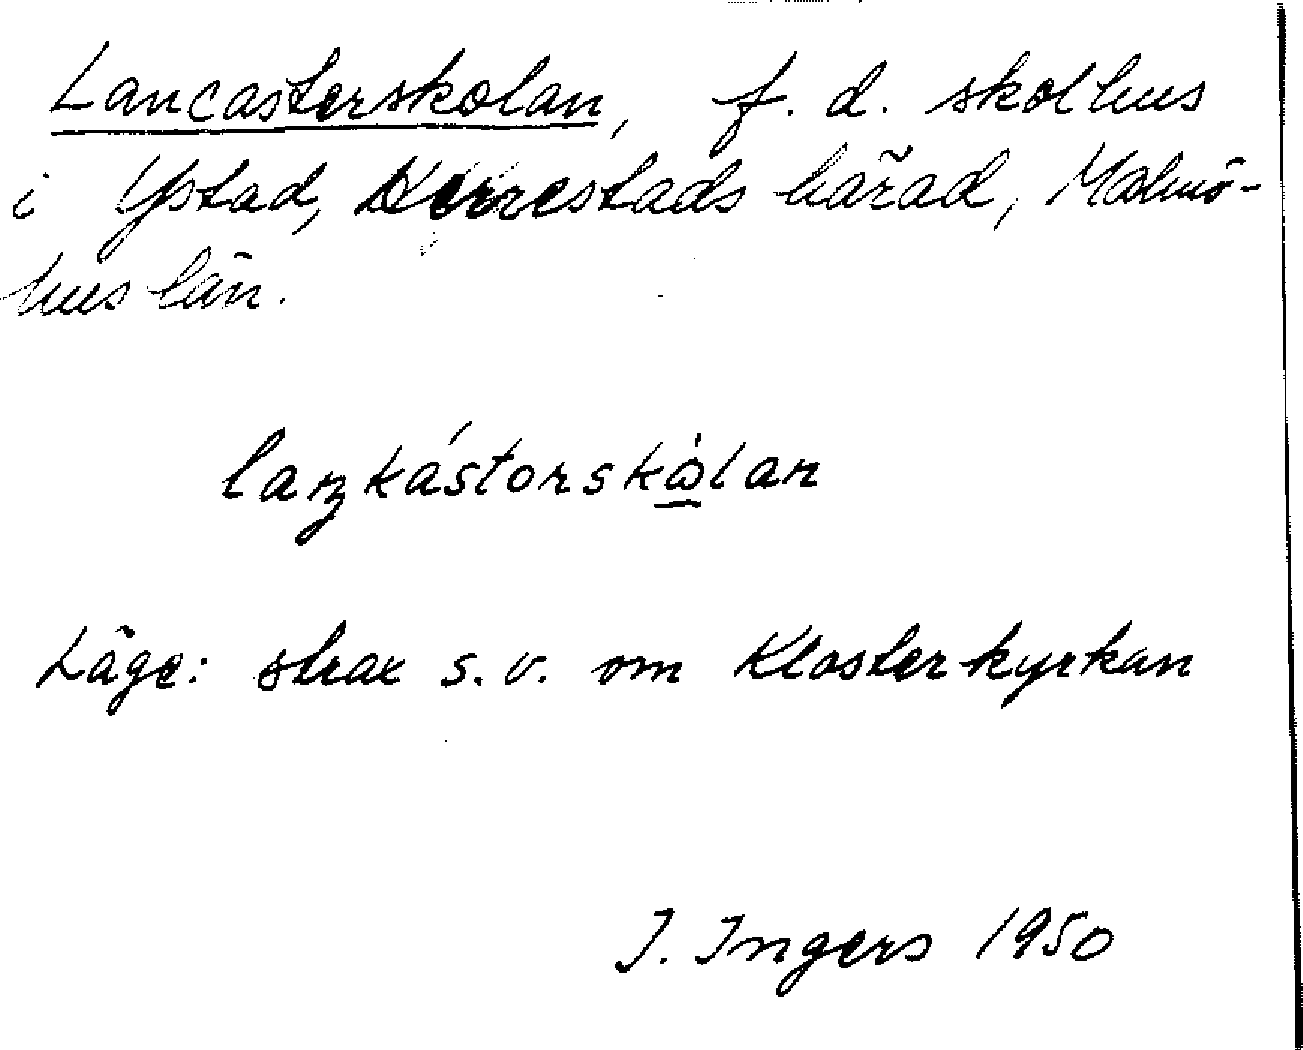 Lancasterskolan, f. d. skolhus
i Ystad, Herrestads härad, Malmö-
hus län.
laŋkástorskòlan
Läge: strax s. v. om Klosterkyrkan
I. Ingers 1950